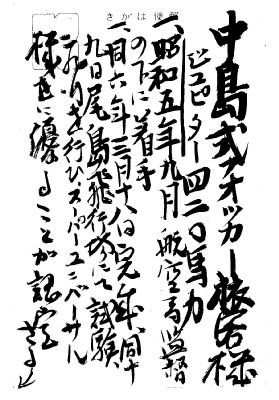 きがは便郵
中島式フオッカー旅客機
ジュピター四二〇馬力
一、昭和五年九月航空局監督
の下に着手
一、同六年三月十八日完成、同十
九日尾島飛行場にて試験
行ひスーパーユニバーサル
機に優ることが認定
さる